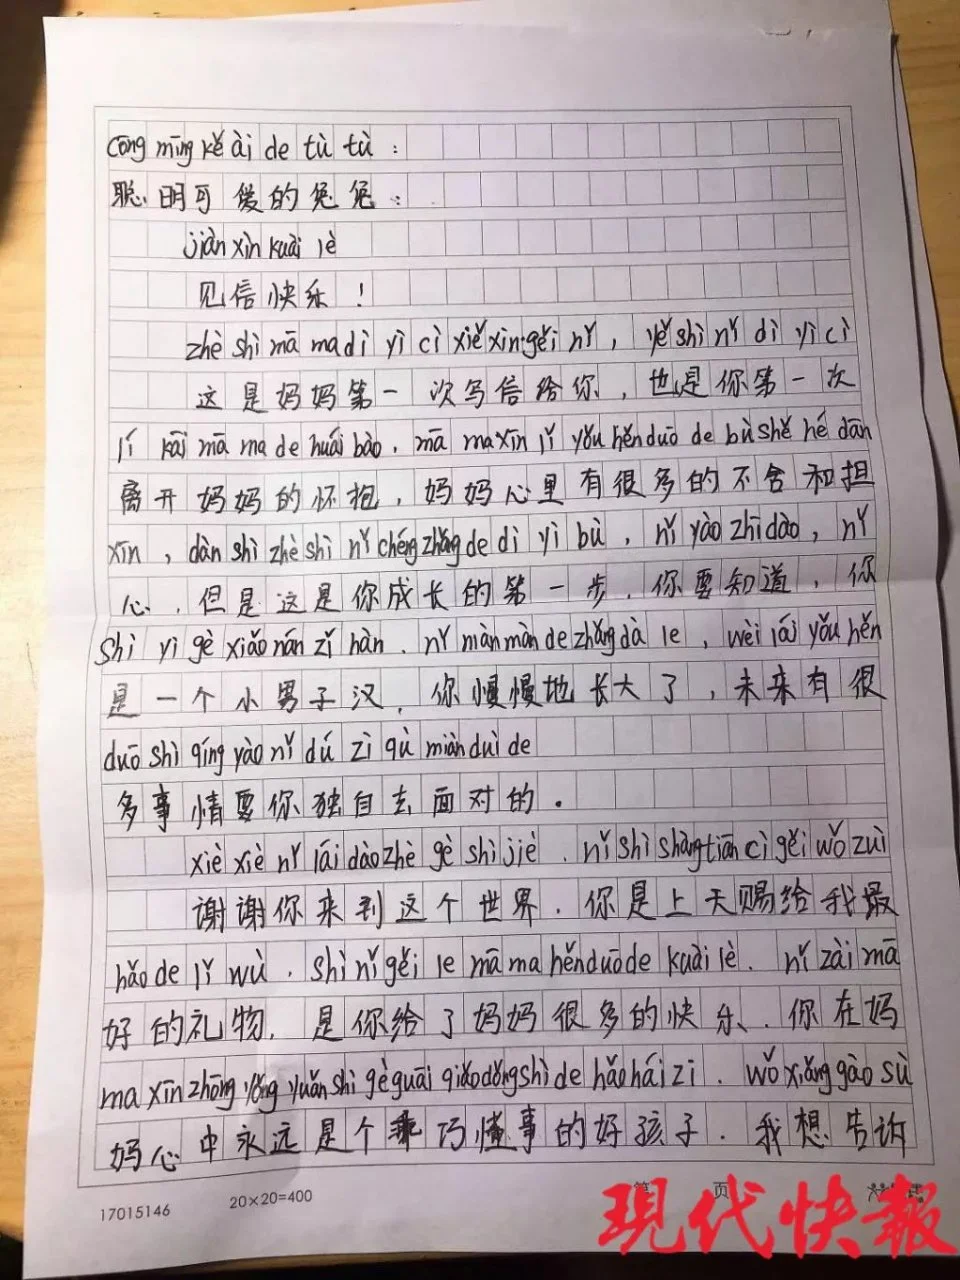 cōng míng kě ài de tù tù：
聪明可爱的兔兔：
jiàn xìn kuài lè
见信快乐！
zhè shì mā ma dì yī cì xiě xìn gěi nǐ，yě shì nǐ dì yī cì
这是妈妈第一次写信给你，也是你第一次
lí kāi mā ma de huái bào，mā ma xīn lǐ yǒu hěn duō de bù shě hé dān
离开妈妈的怀抱，妈妈心里有很多的不舍和担
xīn，dàn shì zhè shì nǐ chéng zhǎng de dì yī bù，nǐ yào zhī dào，nǐ
心，但是这是你成长的第一步，你要知道，你
shì yī gè xiǎo nán zǐ hàn，nǐ màn màn de zhǎng dà le，wèi lái yǒu hěn
是一个小男子汉，你慢慢地长大了，未来有很
duō shì qíng yào nǐ dú zì qù miàn duì de
多事情要你独自去面对的。
xiè xiè nǐ lái dào zhè gè shì jiè，nǐ shì shàng tiān cì gěi wǒ zuì
谢谢你来到这个世界，你是上天赐给我最
hǎo de lǐ wù，shì nǐ gěi le mā ma hěn duō de kuài lè，nǐ zài mā
好的礼物，是你给了妈妈很多的快乐，你在妈
ma xīn zhōng yǒng yuǎn shì gè guāi qiǎo dǒng shì de hǎo hái zi，wǒ xiǎng gào sù
妈心中永远是个乖巧懂事的好孩子，我想告诉
17015146 20×20=400 第 页
現代快報